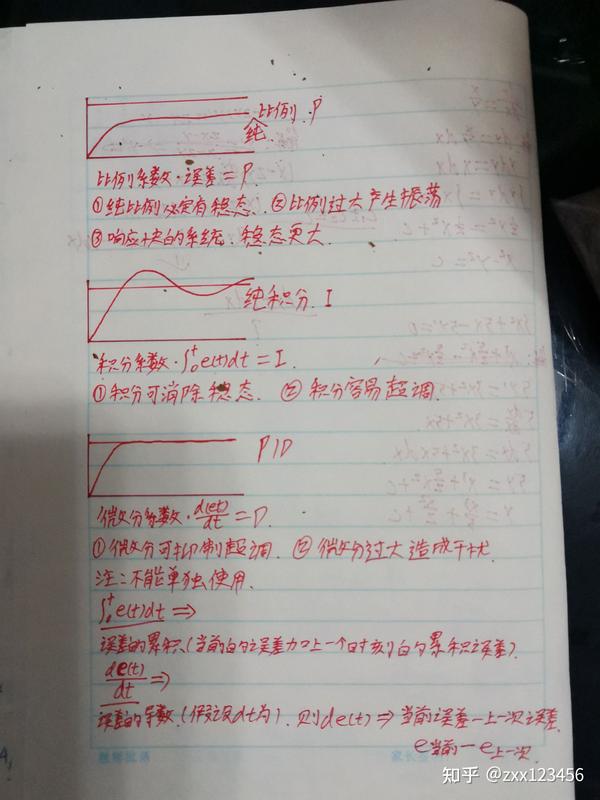 比例 P
纯
比例系数·误差=P.
①纯比例必定有稳态. ②比例过大产生振荡
③响应快的系统. 稳态更大.
纯积分. I
积分系数·∫₀ᵗe(t)dt=I.
①积分可消除稳态. ②积分容易超调.
PID
微分系数·de(t)/dt=D.
①微分可抑制超调. ②微分过大造成干扰.
注:不能单独使用.
∫₀ᵗe(t)dt⇒
误差的累积.(当前的误差加上一个时刻的累积误差).
de(t)/dt⇒
误差的导数.(假设dt为1). 则de(t)⇒当前误差-上一次误差.
e当前-e上一次.
知乎 @zxx123456